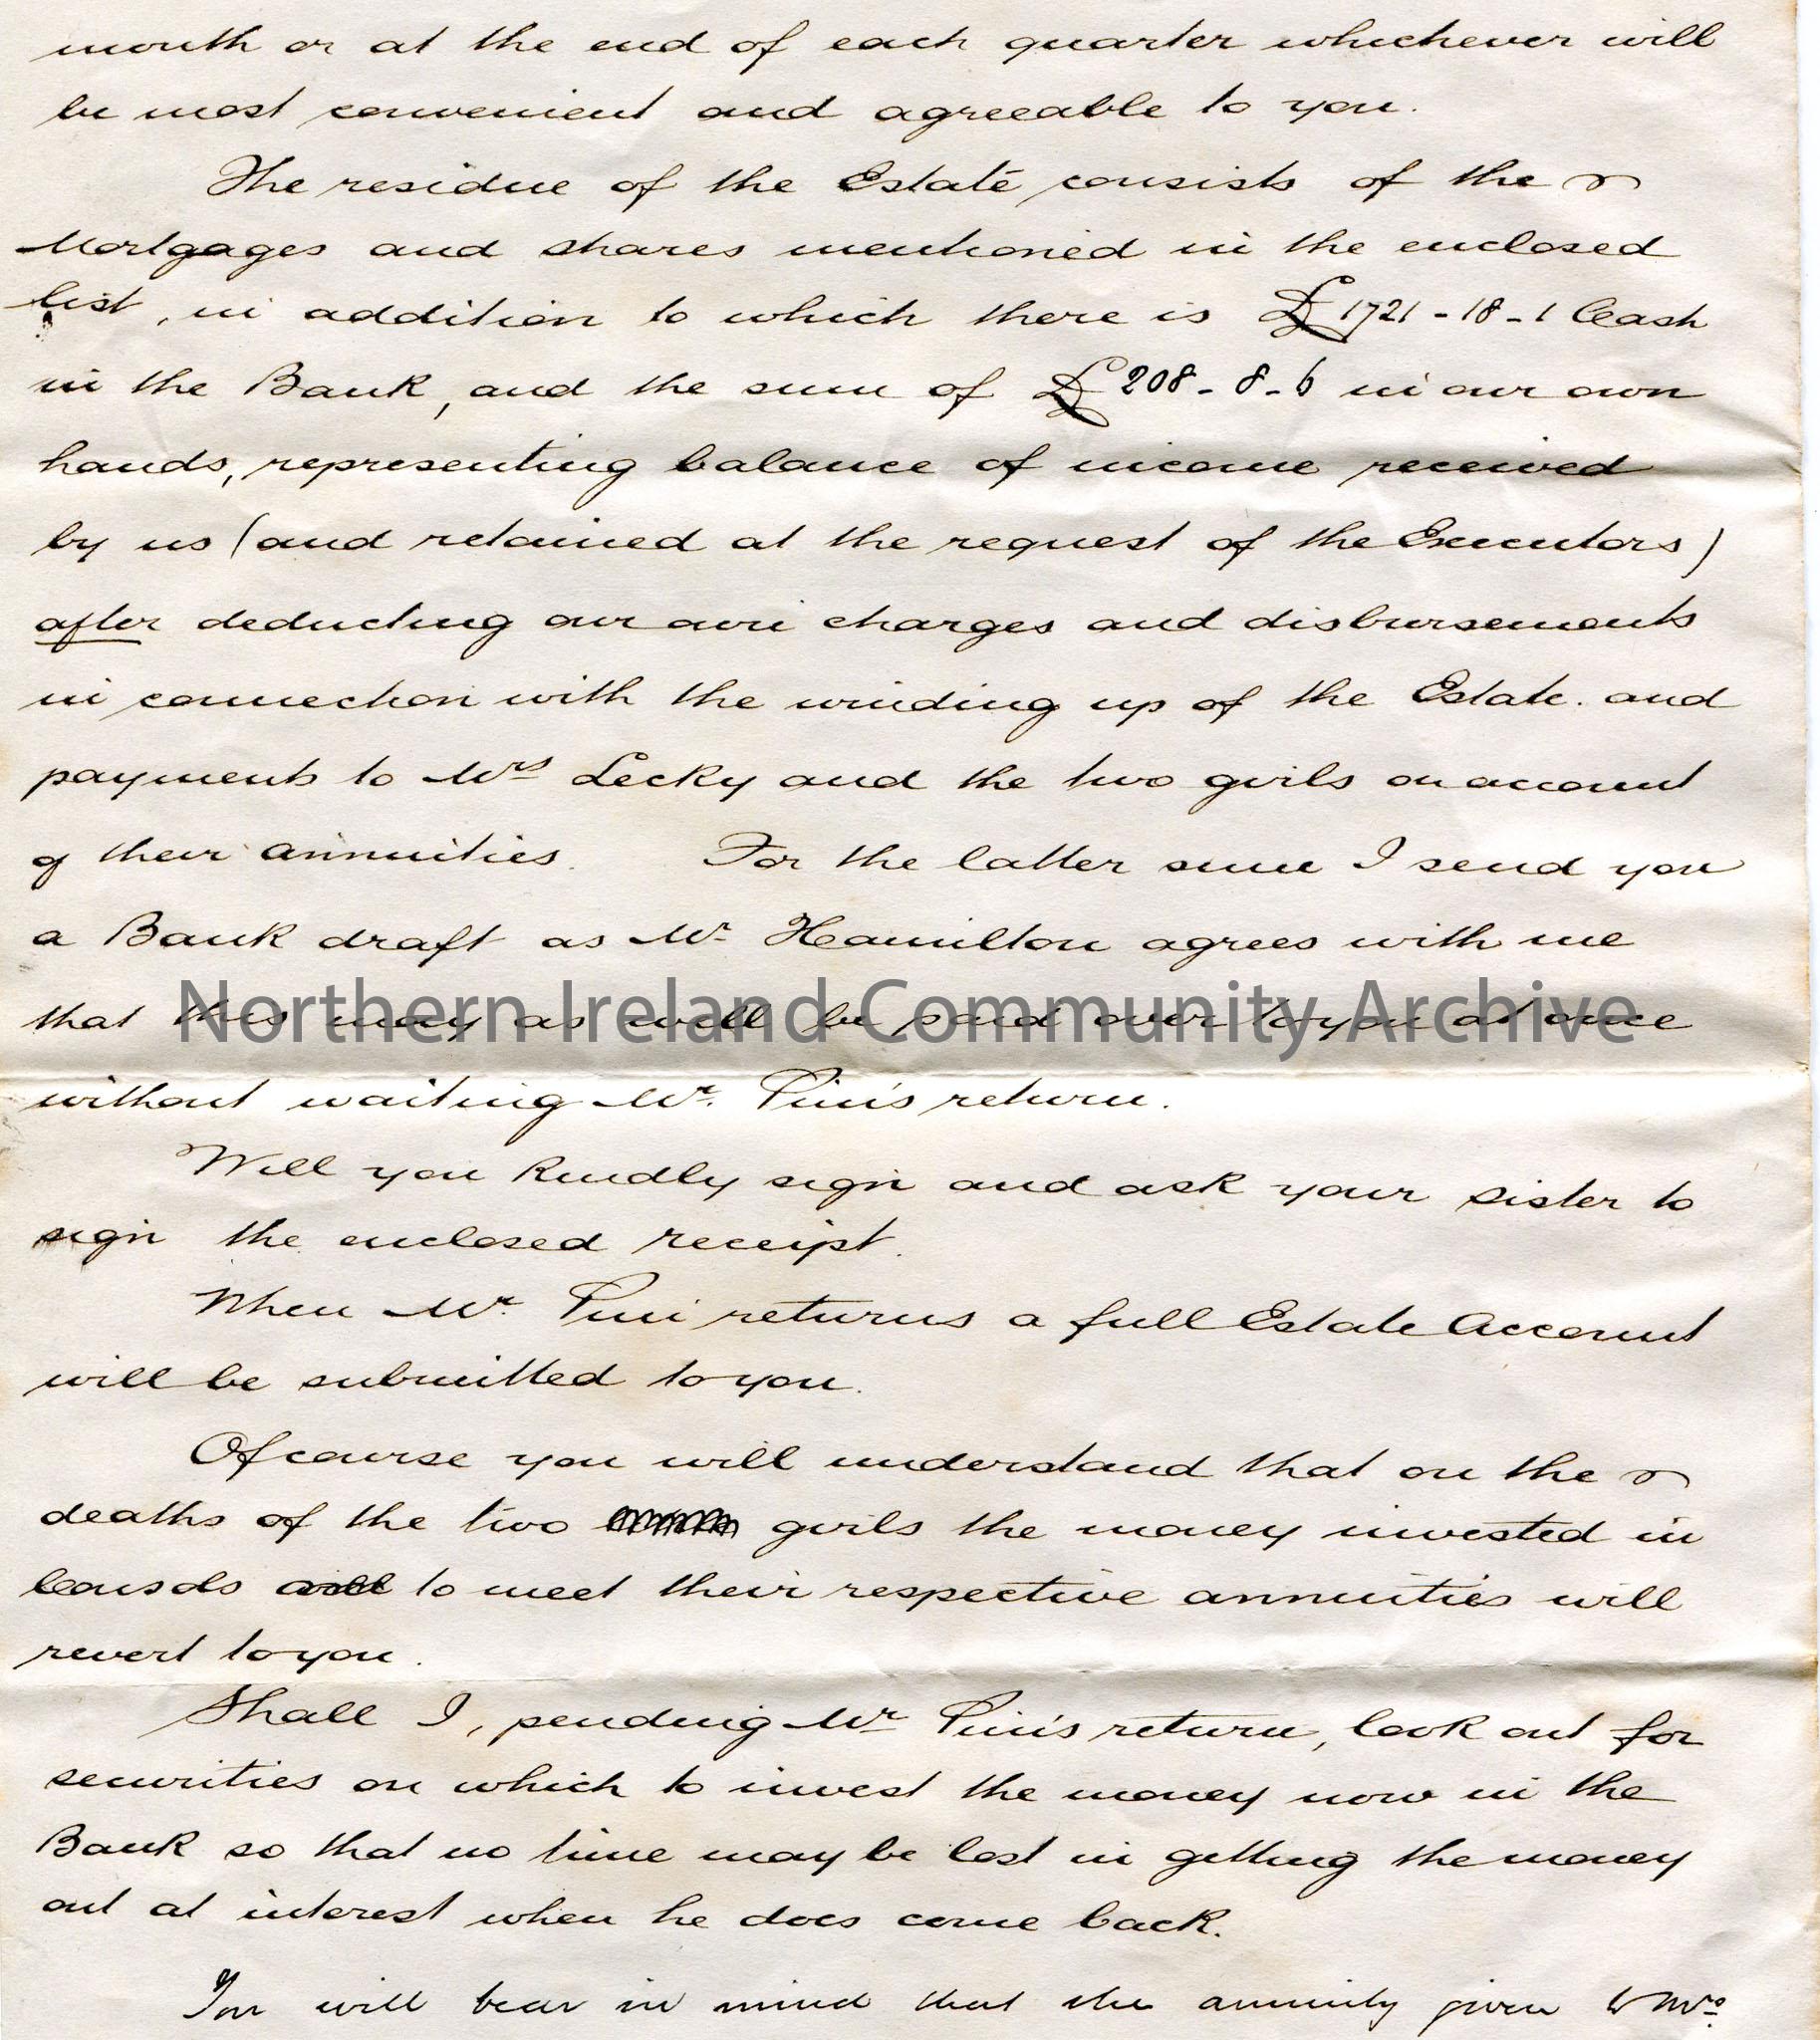 month or at the end of each quarter whichever will
be most convenient and agreeable to you.
The residue of the Estate consists of the
Mortgages and shares mentioned in the enclosed
list, in addition to which there is £1721-18-1 Cash
in the Bank, and the sum of £208-8-6 in our own
hands, representing balance of income received
by us (and retained at the request of the Executors)
after deducting our own charges and disbursements
in connection with the winding up of the Estate. and
payments to Mrs Lecky and the two girls on account
of their annuities. For the latter sum I send you
a Bank draft as Mr. Hamilton agrees with me
that this may as well be paid over to you at once
Northern Ireland Community Archive
without waiting Mr. Pim's return.
Will you kindly sign and ask your sister to
sign the enclosed receipt.
When Mr. Pim returns a full Estate Account
will be submitted to you.
Of course you will understand that on the
deaths of the two girls the money invested in
Consols to meet their respective annuities will
revert to you.
Shall I, pending Mr Pim's return, look out for
securities on which to invest the money now in the
Bank so that no time may be lost in getting the money
out at interest when he does come back.
You will bear in mind that the annuity given to Mrs.